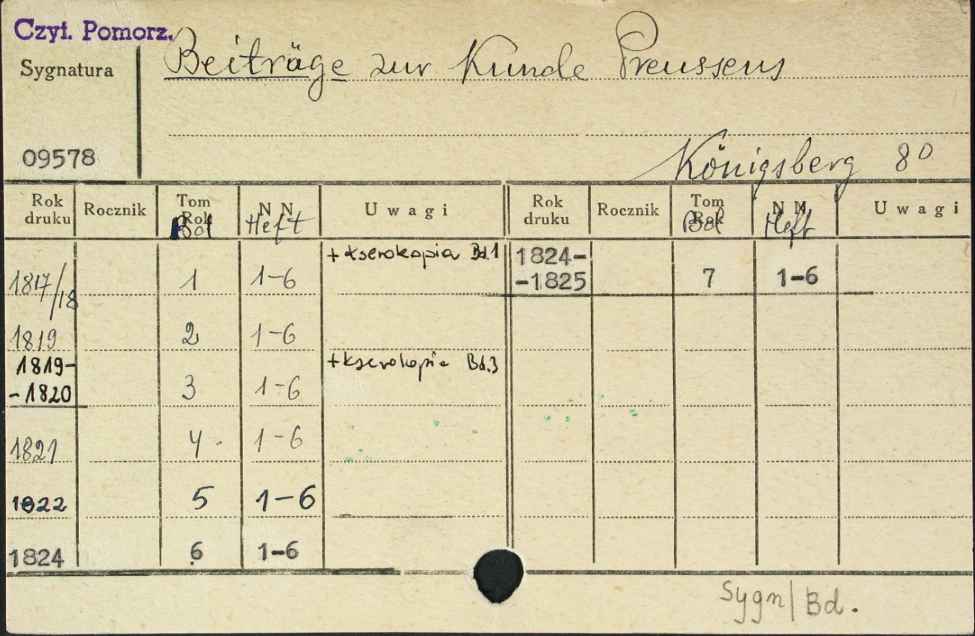 Czyt. Pomorz.
Sygnatura
Beiträge zur Kunde Preussens
09578
Königsberg 8º
Rok druku Rocznik Tom Rok Bd N N. Heft Uwagi Rok druku Rocznik Tom Rok Bd N N. Heft Uwagi
1817/18 1 1-6 + kserokopia Bd.1 1824- -1825 7 1-6
1819 2 1-6
1819- -1820 3 1-6 + kserokopia Bd.3
1821 4. 1-6
1822 5 1-6
1824 6 1-6
Sygn/Bd.